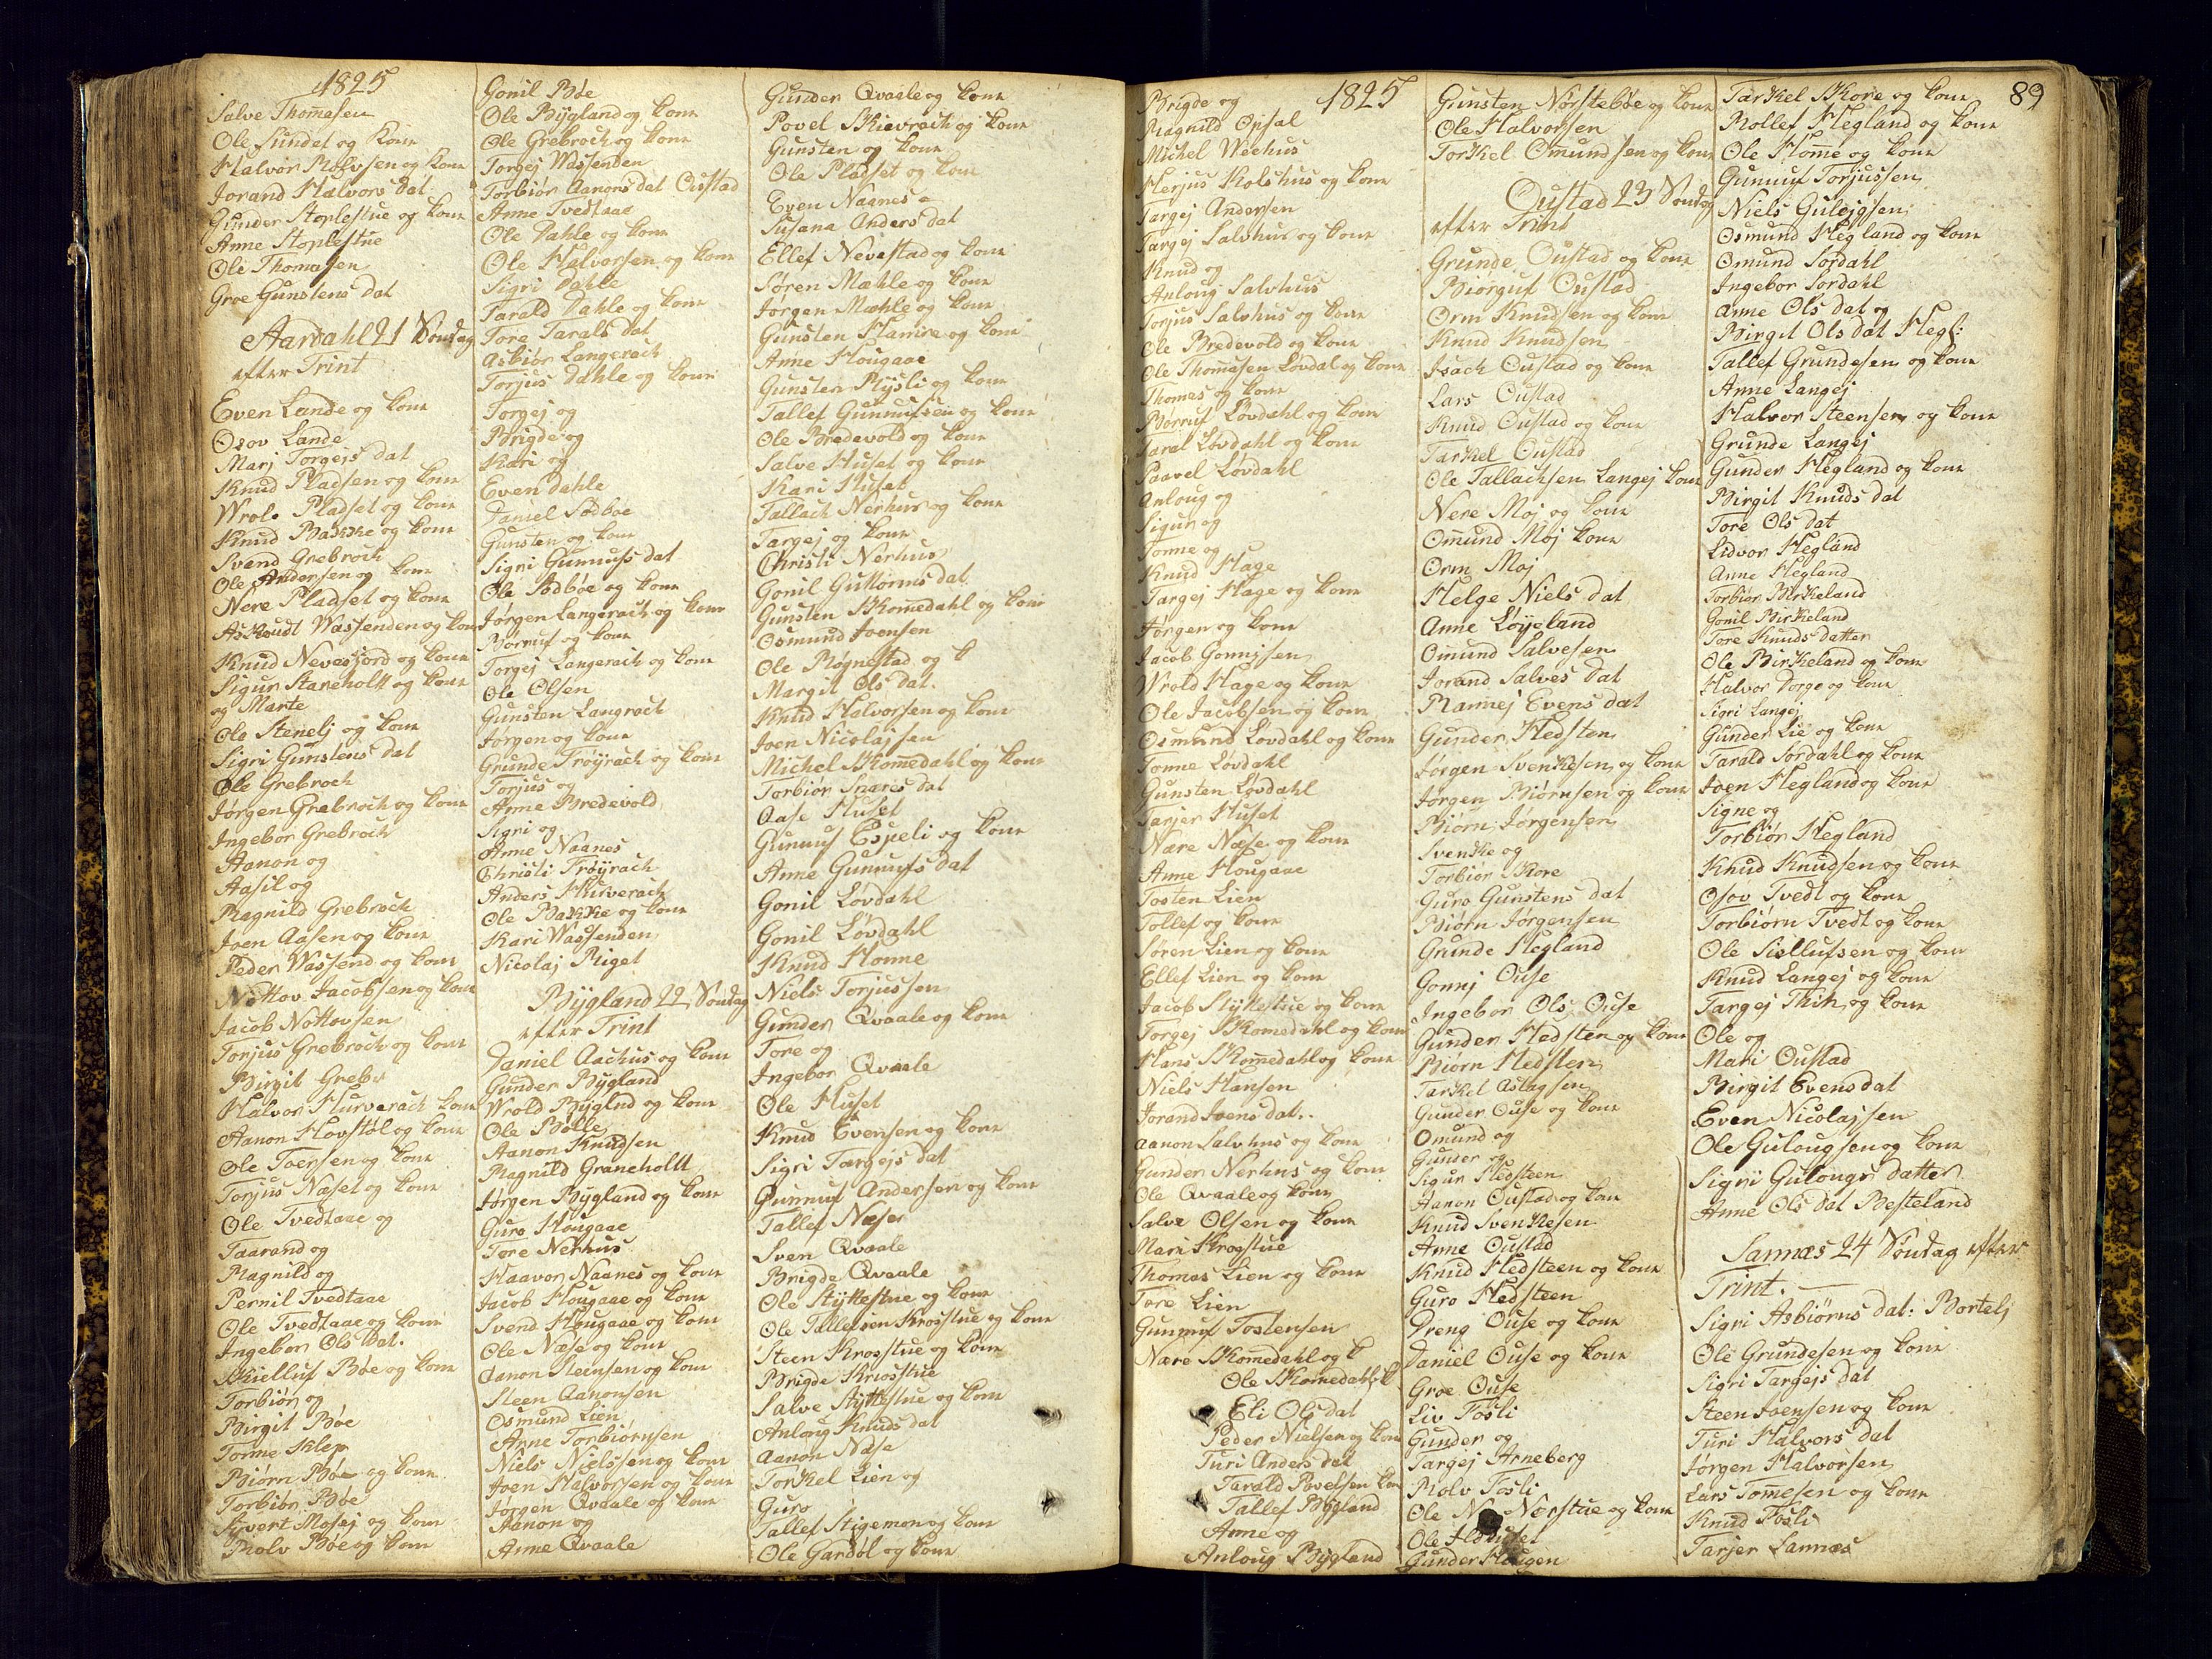 1825
Salve Thomesen
Ole Sundet og Kone
Halvor Rolvsen og Kone
Jorand Halvors dat
Gunder Stoplestue og kone
Anne Stoplestue
Ole Thomasen
Groe Gunstens dat
Aardahl 21 Söndag
efter Trint
Even Lande og kone
Osov Lande
Marj Torgejs dat
Knud Pladsen og kone
Wrol. Pladset og kone
Knud Bakke og kone
Svend Grebroch
Ole Andersen og kone
Nere Pladset og kone
Askoudt Wassenden og kone
Knud Nevesfjord og kone
Sigur Staneholt og kone
og Marte
Ole Stenelj og kone
Sigri Gunstens dat
Ole Grebroch
Jörgen Grebroch og kone
Ingebor Grebroch
Aanon og
Aasil og
Ragnild Grebroch
Joen Aasen og kone
Peder Wassend og kone
Nottov Jacobsen og kone
Jacob Nottovsen
Torjus Grebroch og kone
Birgit Grebr
Halvor Hurverach kone
Aanon Hovstöl og kone
Ole Toersen og kone
Torjus Næset og kone
Ole Tvedtaae og
Taarand og
Ragnild og
Pernil Tvedtaae
Ole Tvedtaae og kone
Ingebor Ols dat.
Skielluf Böe og kone
Torbiör og
Birgit Böe
Tonne Klep
Biörn Böe og kone
Torbiör Böe
Syvert Mosej og kone
Rolv Böe og kone
Gonil Böe
Ole Bÿgland og kone
Ole Grebroch og kone
Torgej Wassenden
Torbiör Aanons dat Oustad
Anne Tvedtaae
Ole Dahle og kone
Ole Halvorsen og kone
Sigri Dahle
Tarald Dahle og kone
Tore Tarals dat
Asbiör Langerach
Torjus Dahle og kone
Torgej og
Brigde og
Kari og
Even Dahle
Daniel Sodboe
Gunsten og kone
Sigri Gunnufs dat
Ole Sodböe og kone
Jörgen Langerach og kone
Börruf og kone
Torgej Langerach og kone
Ole Olsen
Gunsten Langrach
Jörgen og kone
Grunde Fröÿrach og kone
Torjus og
Anne Bredevold
Sigri og
Anne Naanes
Christi Fröÿrach
Anders Hurverach
Ole Bakke og kone
Kari Wassenden
Nicolaj Riget
Bÿgland 22 Söndag
efter Trint
Daniel Aachus og kone
Gunder Bÿgland
Wrold Bÿglnd og kone
Ole Bolle
Aanon Knudsen
Ragnild Graneholt
Jörgen Bÿgland og kone
Guro Hougaae
Tore Nerhus
Haavor Naanes og kone
Jacob Hougaae og kone
Svend Hougaae og kone
Ole Næse og kone
Aanon Steensen og kone
Steen Aanonsen
Osmund Lien
Anne Torbiörnsen
Niels Nielssen og kone
Joen Halvorsen og kone
Jörgen Qvaale og kone
Aanon og
Anne Qvaale
Gunder Qvaale og kone
Povel Skievrach og kone
Gunsten og kone
Ole Pladset og kone
Even Naanes
Susana Anders dat
Ellef Nevestad og kone
Sören Mæhle og kone
Jörgen Mæhle og kone
Gunsten Hamre og kone
Anne Hougaae
Gunsten Rÿsli og kone
Tallef Gunnufsen og kone
Ole Bredevold og kone
Salve Huset og kone
Kari Huset
Tallach Nerhus og kone
Targej og kone
Christi Nerhus
Gonil Guttorms dat
Gunsten Skomedahl og kone
Osmund Joensen
Ole Rögnestad og k
Margit Ols dat.
Knud Halvorsen og kone
Joen Nicolajsen
Michel Skomedahl og kone
Torbiör Snares dat
Aase Huset
Gunnuf Espeli og kone
Anne Gunnufs dat
Gonil Lövdahl
Gonil Lövdahl
Knud Honne
Niels Torjussen
Gunder Qvaale og kone
Tore og
Ingebor Qvaale
Ole Huset
Knud Evensen og kone
Sigri Targejs dat
Gunnuf Andersen og kone
Tallef Næse
Sven Qvaale
Brigde Qvaale
Ole Stÿttestue og kone
Ole Tallefsen Krosstue og kone
Steen Krosstue og kone
Brigde Krosstue
Salve Stÿttestue og kone
Anloug Knuds dat
Aanon Næse
Torkel Lien og
Guro
Tallef Stigemon og kone
Ole Gardöl og kone
1825
Brigde og
Ragnild Opsal
Michel Weehus
Herjus Kolshus og kone
Targej Andersen
Targej Salvhus og kone
Knud og
Anloug Salvhus
Torjus Salvhus og kone
Ole Bredevold og kone
Ole Thomesen Lövdal og kone
Thomas og kone
Börruf Lövdahl og kone
Taral Lövdahl og kone
Paavel Lövdahl
Anloug og
Sigur og
Tonne og
Knud Hage
Targej Hage og kone
Jörgen og kone
Jacob Gonnijsen
Wrold Hage og kone
Ole Jacobsen og kone
Osmund Lovdahl og kone
Tonne Lövdahl
Gunsten Lövdahl
Tarjer Huset
Nære Næse og kone
Anne Hougaae
Tosten Lien
Tollef og kone
Sören Lien og kone
Ellef Lien og kone
Jacob Stÿttestue og kone
Torgej Skomedahl og kone
Hans Skomedahl og kone
Niels Hansen
Jorand Joens dat.
Aanon Salvhus og kone
Gunder Nerhus og kone
Ole Qvaale og kone
Salve Olsen og kone
Mari Krogstue
Thomas Lien og kone
Tore Lien
Gunnuf Tostensen
Nære Skomedahl og k
Ole Skomedahl k
Eli Ols dat
Peder Nielsen og kone
Turi Anders dat
Tarald Povelsen kone
Tallef Bÿgland
Anne og
Anloug Bÿgland
Gunsten Nörsteböe og kone
Ole Halvorsen
Torkel Omundsen og kone
Oustad 23 Söndag
efter Trint
Grunde Oustad og kone
Biörguf Oustad
Orm Knudsen og kone
Knud Knudsen
Isach Oustad og kone
Lars Oustad
Knud Oustad og kone
Tarkel Oustad
Ole Tallachsen Langej kone
Nere Moj og kone
Omund Moj kone
Orm Moj
Helge Niels dat
Anne Löyland
Omund Salvesen
Jorand Salves dat
Rannej Evens dat
Gunder Hedsten
Jörgen Svenkesen og kone
Jörgen Biörnsen og kone
Biörn Jörgensen
Svenke og
Torbiör Skore
Guro Gunstens dat
Biörn Jörgensen
Grunde Hegland
Gonnj Ouse
Ingebor Ols Ouse
Gunder Hedsten og kone
Biörn Hedsten
Tarkel Aslagsen
Gunder Ouse og kone
Omund og
Gunder og
Sigur Hedsteen
Aanon Oustad og kone
Knud Svenkesen
Anne Oustad
Knud Hedsteen og kone
Guro Hedsteen
Dreng Ouse og kone
Daniel Ouse og kone
Groe Ouse
Liv Fosli
Gunder og
Targej Arneberg
Rolv Fosli
Ole N Nerstue og kone
Gunder Hougen
89
Tarkel Skore og kone
Rollef Hegland og kone
Ole Homme og kone
Gunnuf Torjussen
Niels Gulejgsen
Osmund Hegland og kone
Omund Sordahl
Ingebor Sordahl
Anne Ols dat og
Birgit Ols dat Hegl:
Tallef Grundesen og kone
Anne Langej
Halvor Steensen og kone
Grunde Langej
Gunder Hegland og kone
Birgit Knuds dat
Tore Ols dat
Lidvor Hegland
Anne Hegland
Torbiör Birkeland
Gonil Birkeland
Tore Knuds datter
Ole Birkeland og kone
Halvor Dorge og kone
Sigri Langej
Gunder Lie og kone
Tarald Sordahl og kone
Joen Hegland og kone
Signe og
Torbiör Hegland
Knud Knudsen og kone
Osov Tvedt og kone
Torbiörn Tvedt og kone
Ole Siellufsen og kone
Knud Langej og kone
Targej og kone
Ole og
Mari Oustad
Birgit Evensdat
Even Nicolajsen
Ole Gulougsen og kone
Sigri Gulougs datter
Anne Ols dat Besteland
Sannæs 24 Söndag efter
Trint.
Sigri Asbiörns dat: Bortelj
Ole Grundesen og kone
Sigri Targejs dat
Steen Joensen og kone
Turi Halvors dat
Jörgen Halvorsen
Lars Tomesen og kone
Knud Fosli
Tarjer Sannæs